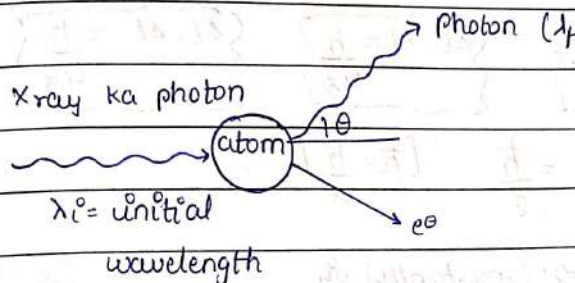 Photon (λf
X ray ka photon
θ
atom
λi = initial
e⊖
wavelength